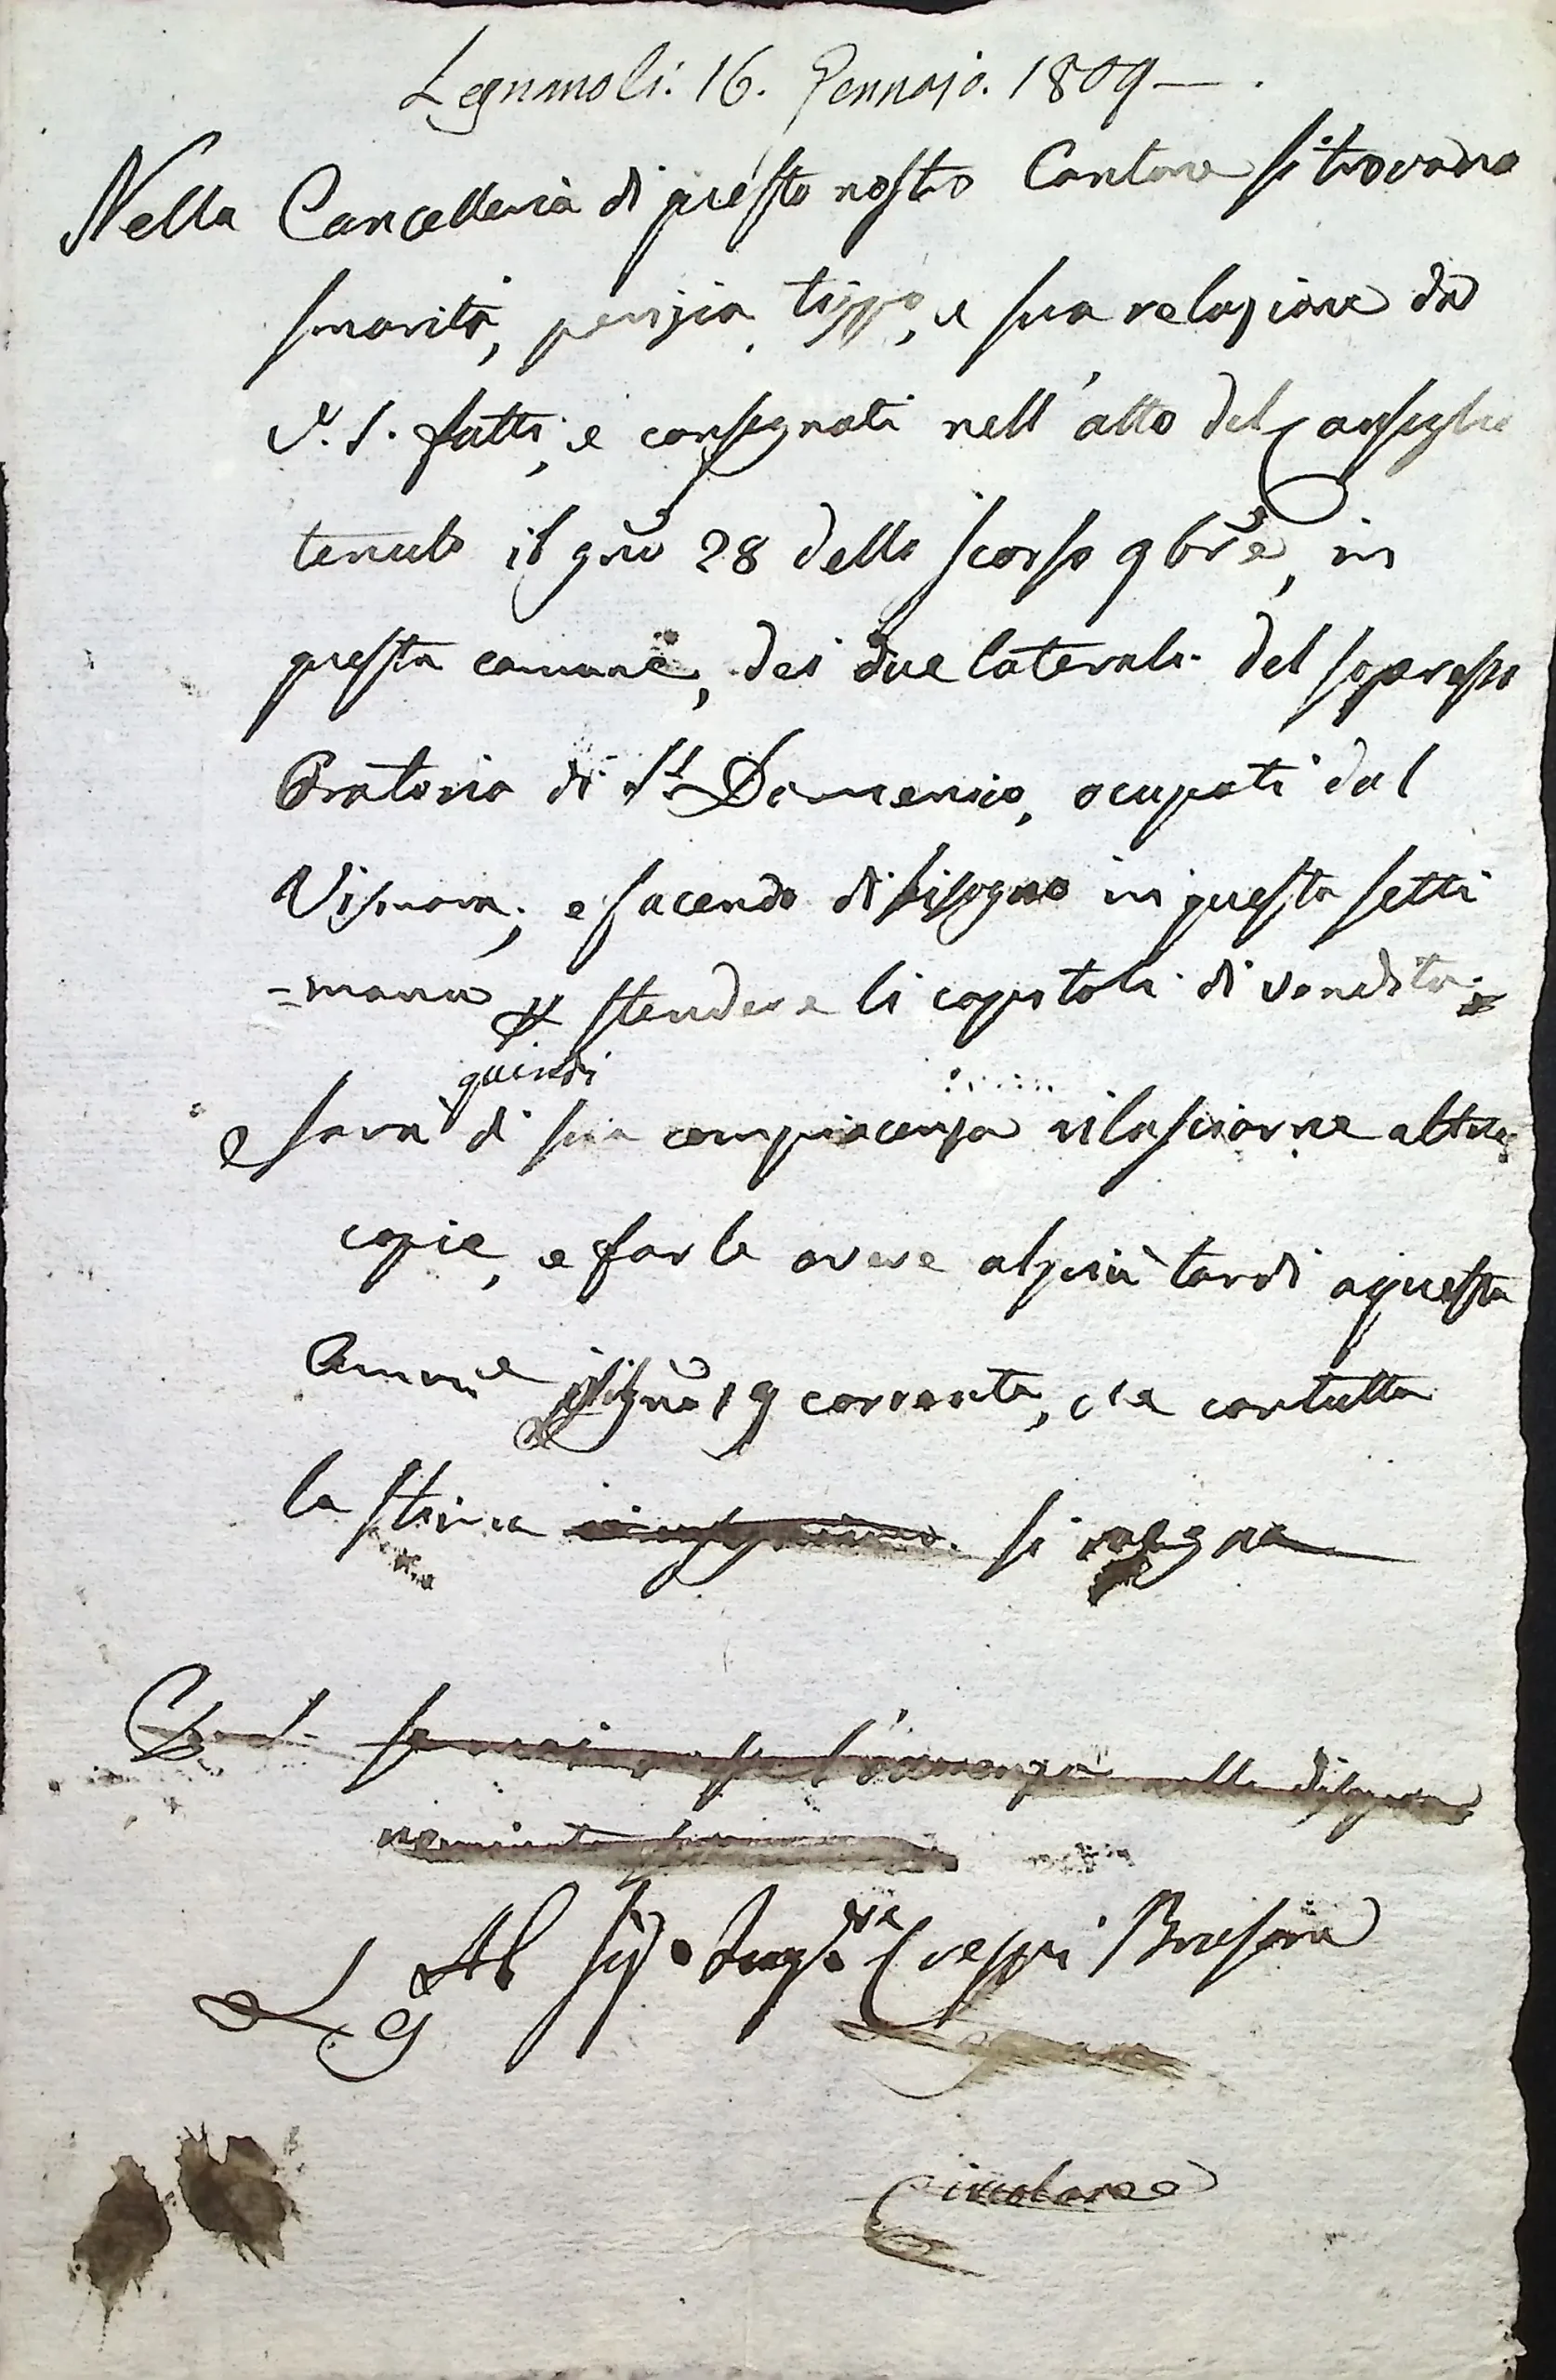 Legnano li. 16. Gennajo. 1809
Nella Cancelleria di questo nostro Cantone si trovano
smariti, perizia, tippo, e sua relazione da
V. S. fatti, e consegnati nell'atto del Consiglio
tenuto il gno 28 dello scorso 9bre, in
questa comune, dei due laterali del sopresso
Oratorio di St. Domenico, ocupati dal
Vismara; e facendo di bisogno in questa setti
=mana stendere li capitoli di vendita
quindi
e sarà di sua compiacenza rilasciarne altre
copie, e farle avere al più tardi a questa
Ammne il gno 19 corrente, che con tutta
la stima si
l'
Al Sig. Ingre Crespi Bresana
Lg
Circolare